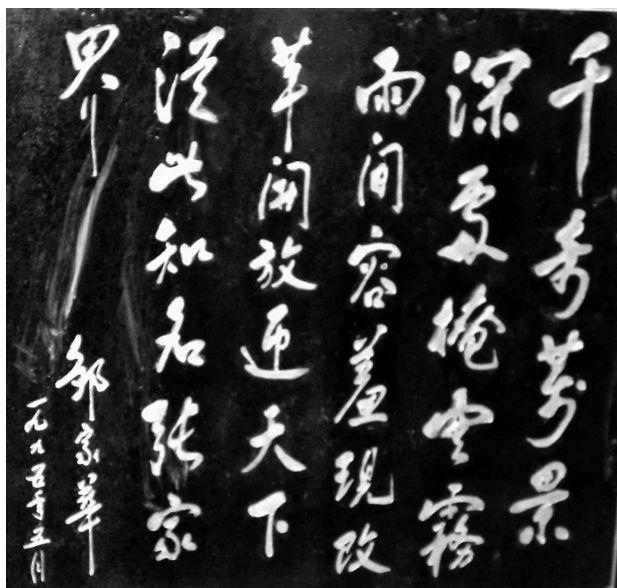 千秀萬景
深處掩雲霧
雨間容羞現改
革開放迎天下
從此知名張家
界
鄒家華
一九九五年五月